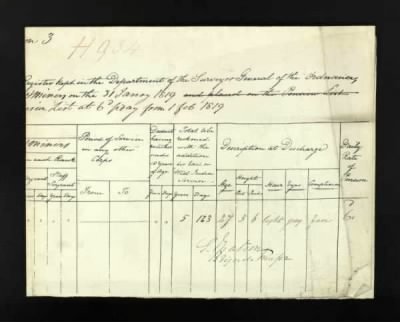 3
H 934
Register kept in the Department of the Surveyor General of the Ordnance
Miners on the 31 Janry 1819 and placed on the Pension List
List at 6d p day from 1 Feb 1819
Miners
in each Rank
Sergeant
Staff Sergeant
Period of Service in any other Corps
From
To
Deduct having enlisted under 18 Years of Age
Total to be reckoned with the addition for East or West India Service
Description at Discharge
Age
Height
Feet
Ins
Hair
Eyes
Complexion
Daily Rate of Pension
Days
Years
Days
Years
Days
Years
Days
5
123
27
5
6
light
grey
fair
d
6